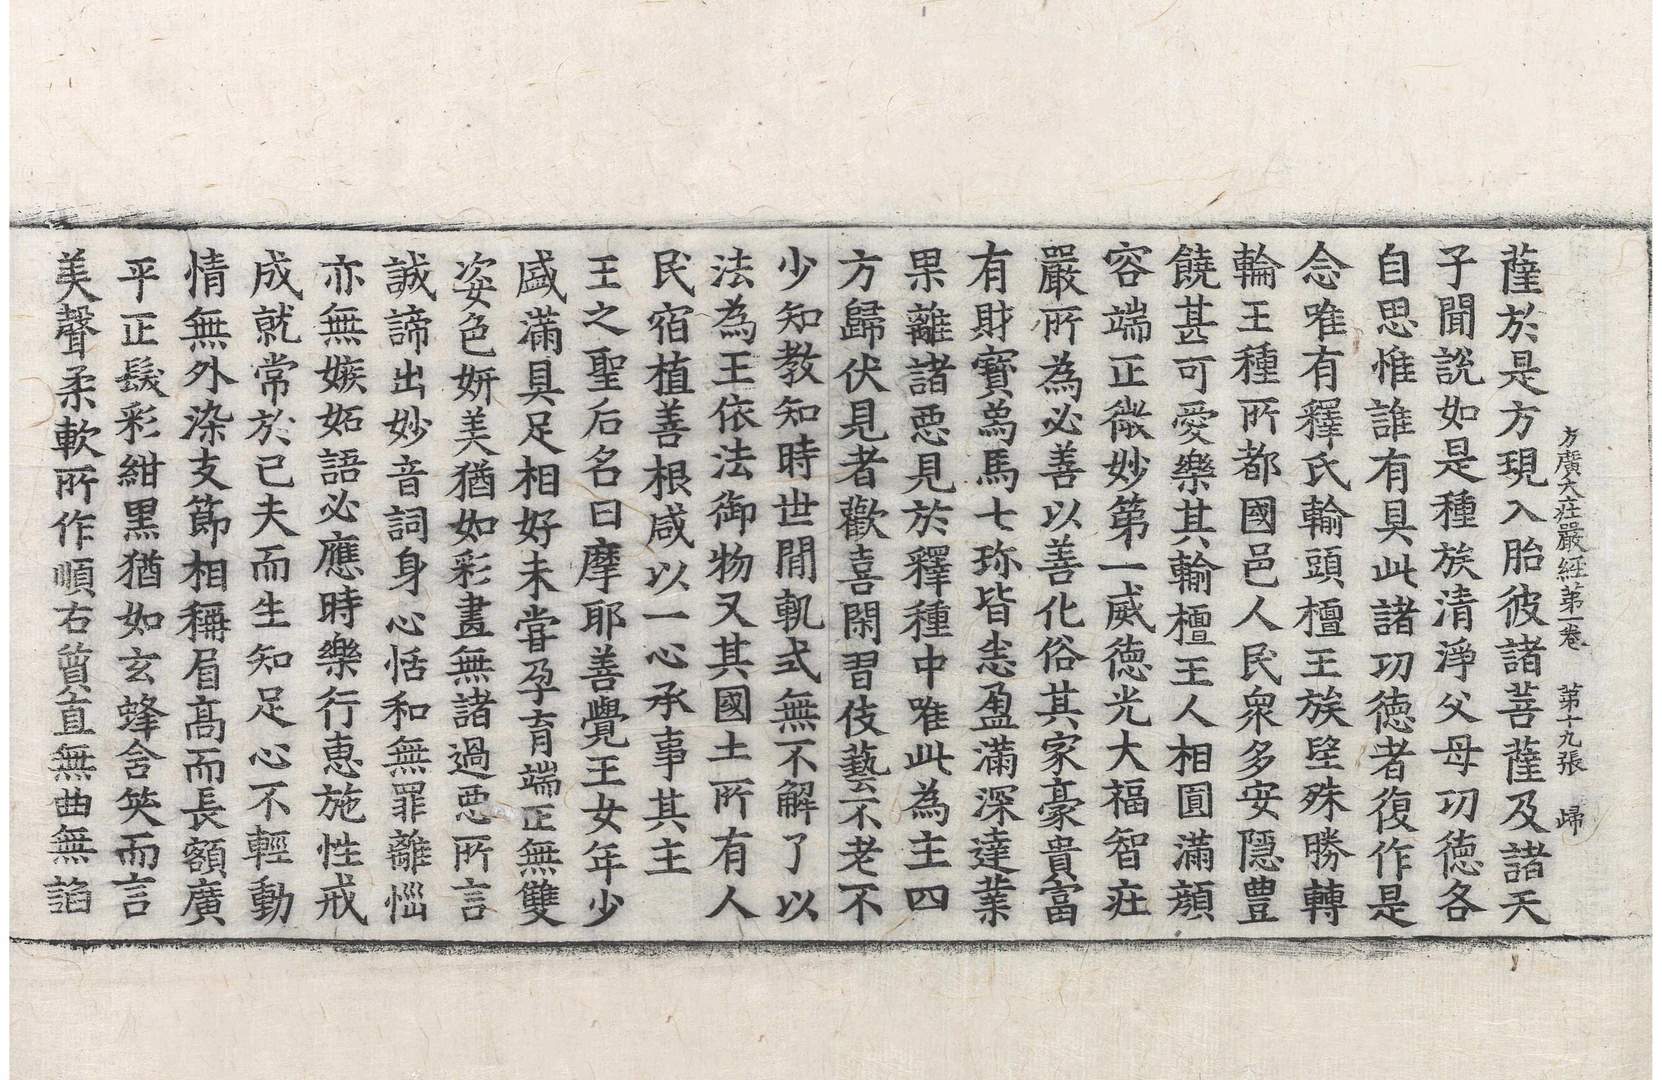 方廣大庄嚴經苐一卷 苐十九張 歸
薩於是方現入胎彼諸菩薩及諸天
子聞說如是種族清淨父母功德各
自思惟誰有具此諸功德者復作是
念唯有釋氏輸頭檀王族望殊勝轉
輪王種所都國邑人民衆多安隱豊
饒甚可愛樂其輸檀王人相圓滿顔
容端正微妙第一威德光大福智庄
嚴所為必善以善化俗其家豪貴富
有財寳象馬七珎皆悉盈滿深達業
果離諸惡見於釋種中唯此為主四
方歸伏見者歡喜閑習伎藝不老不
少知教知時世間軌式無不解了以
法為王依法御物又其國土所有人
民宿植善根咸以一心承事其主
王之聖后名曰摩耶善覺王女年少
盛滿具足相好未甞孕育端正無雙
姿色妍美猶如彩畫無諸過惡所言
誠諦出妙音詞身心恬和無罪離惱
亦無嫉妬語必應時樂行惠施性戒
成就常於己夫而生知足心不輕動
情無外染支節相稱眉高而長額廣
平正髮彩紺黒猶如玄蜂含笑而言
美聲柔軟所作順右質直無曲無諂